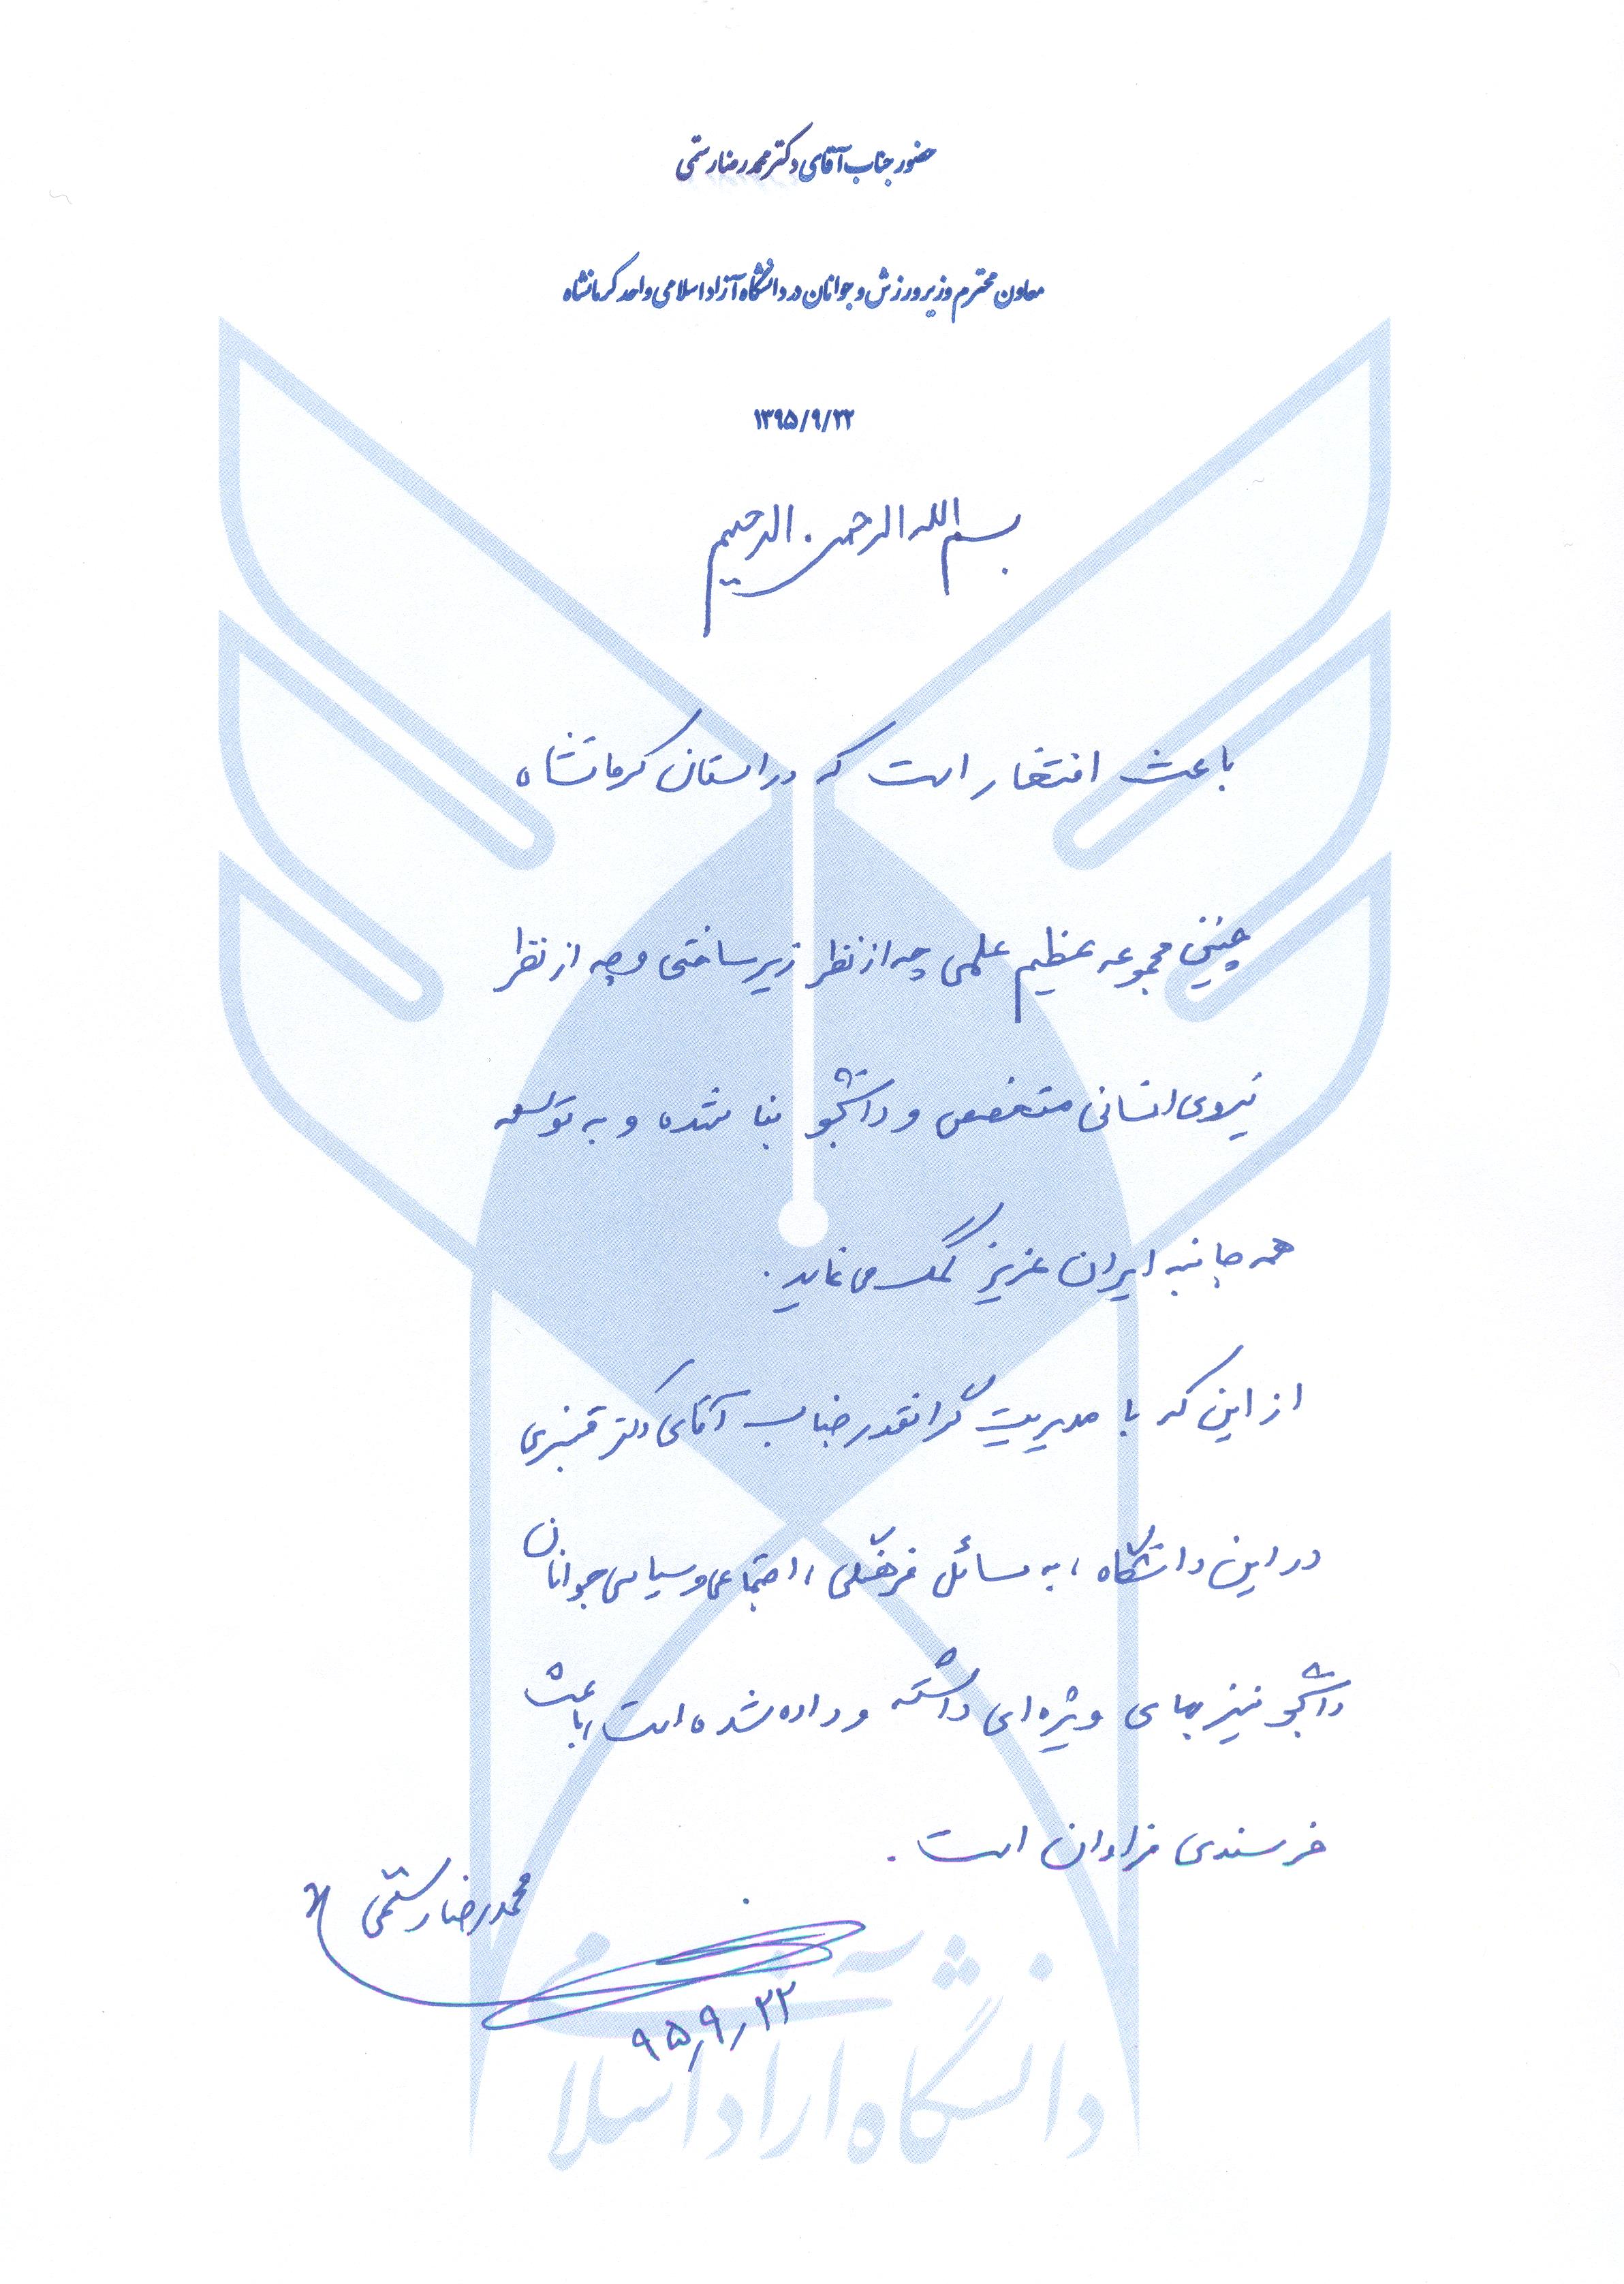 حضور جناب آقای دکتر محمدرضا رستمی
معاون محترم وزیر ورزش و جوانان در دانشگاه آزاد اسلامی واحد کرمانشاه
۱۳۹۵/۹/۲۲
بسم الله الرحمن الرحیم
باعث افتخار است که در استان کرمانشاه
چنین مجموعه عظیم علمی چه از نظر زیرساختی و چه از نظر
نیروی انسانی متخصص و دانشجو بنا شده و به توسعه
همه جانبه ایران عزیز کمک می نماید.
از این که با مدیریت گرانقدر جناب آقای دکتر قنبری
در این دانشگاه، به مسائل فرهنگی، اجتماعی و سیاسی جوانان
دانشجو نیز بهای ویژه ای داشته و داده شده است، باعث
خرسندی فراوان است.
محمدرضا رستمی
۹۵/۹/۲۲
دانشگاه آزاد اسلامی